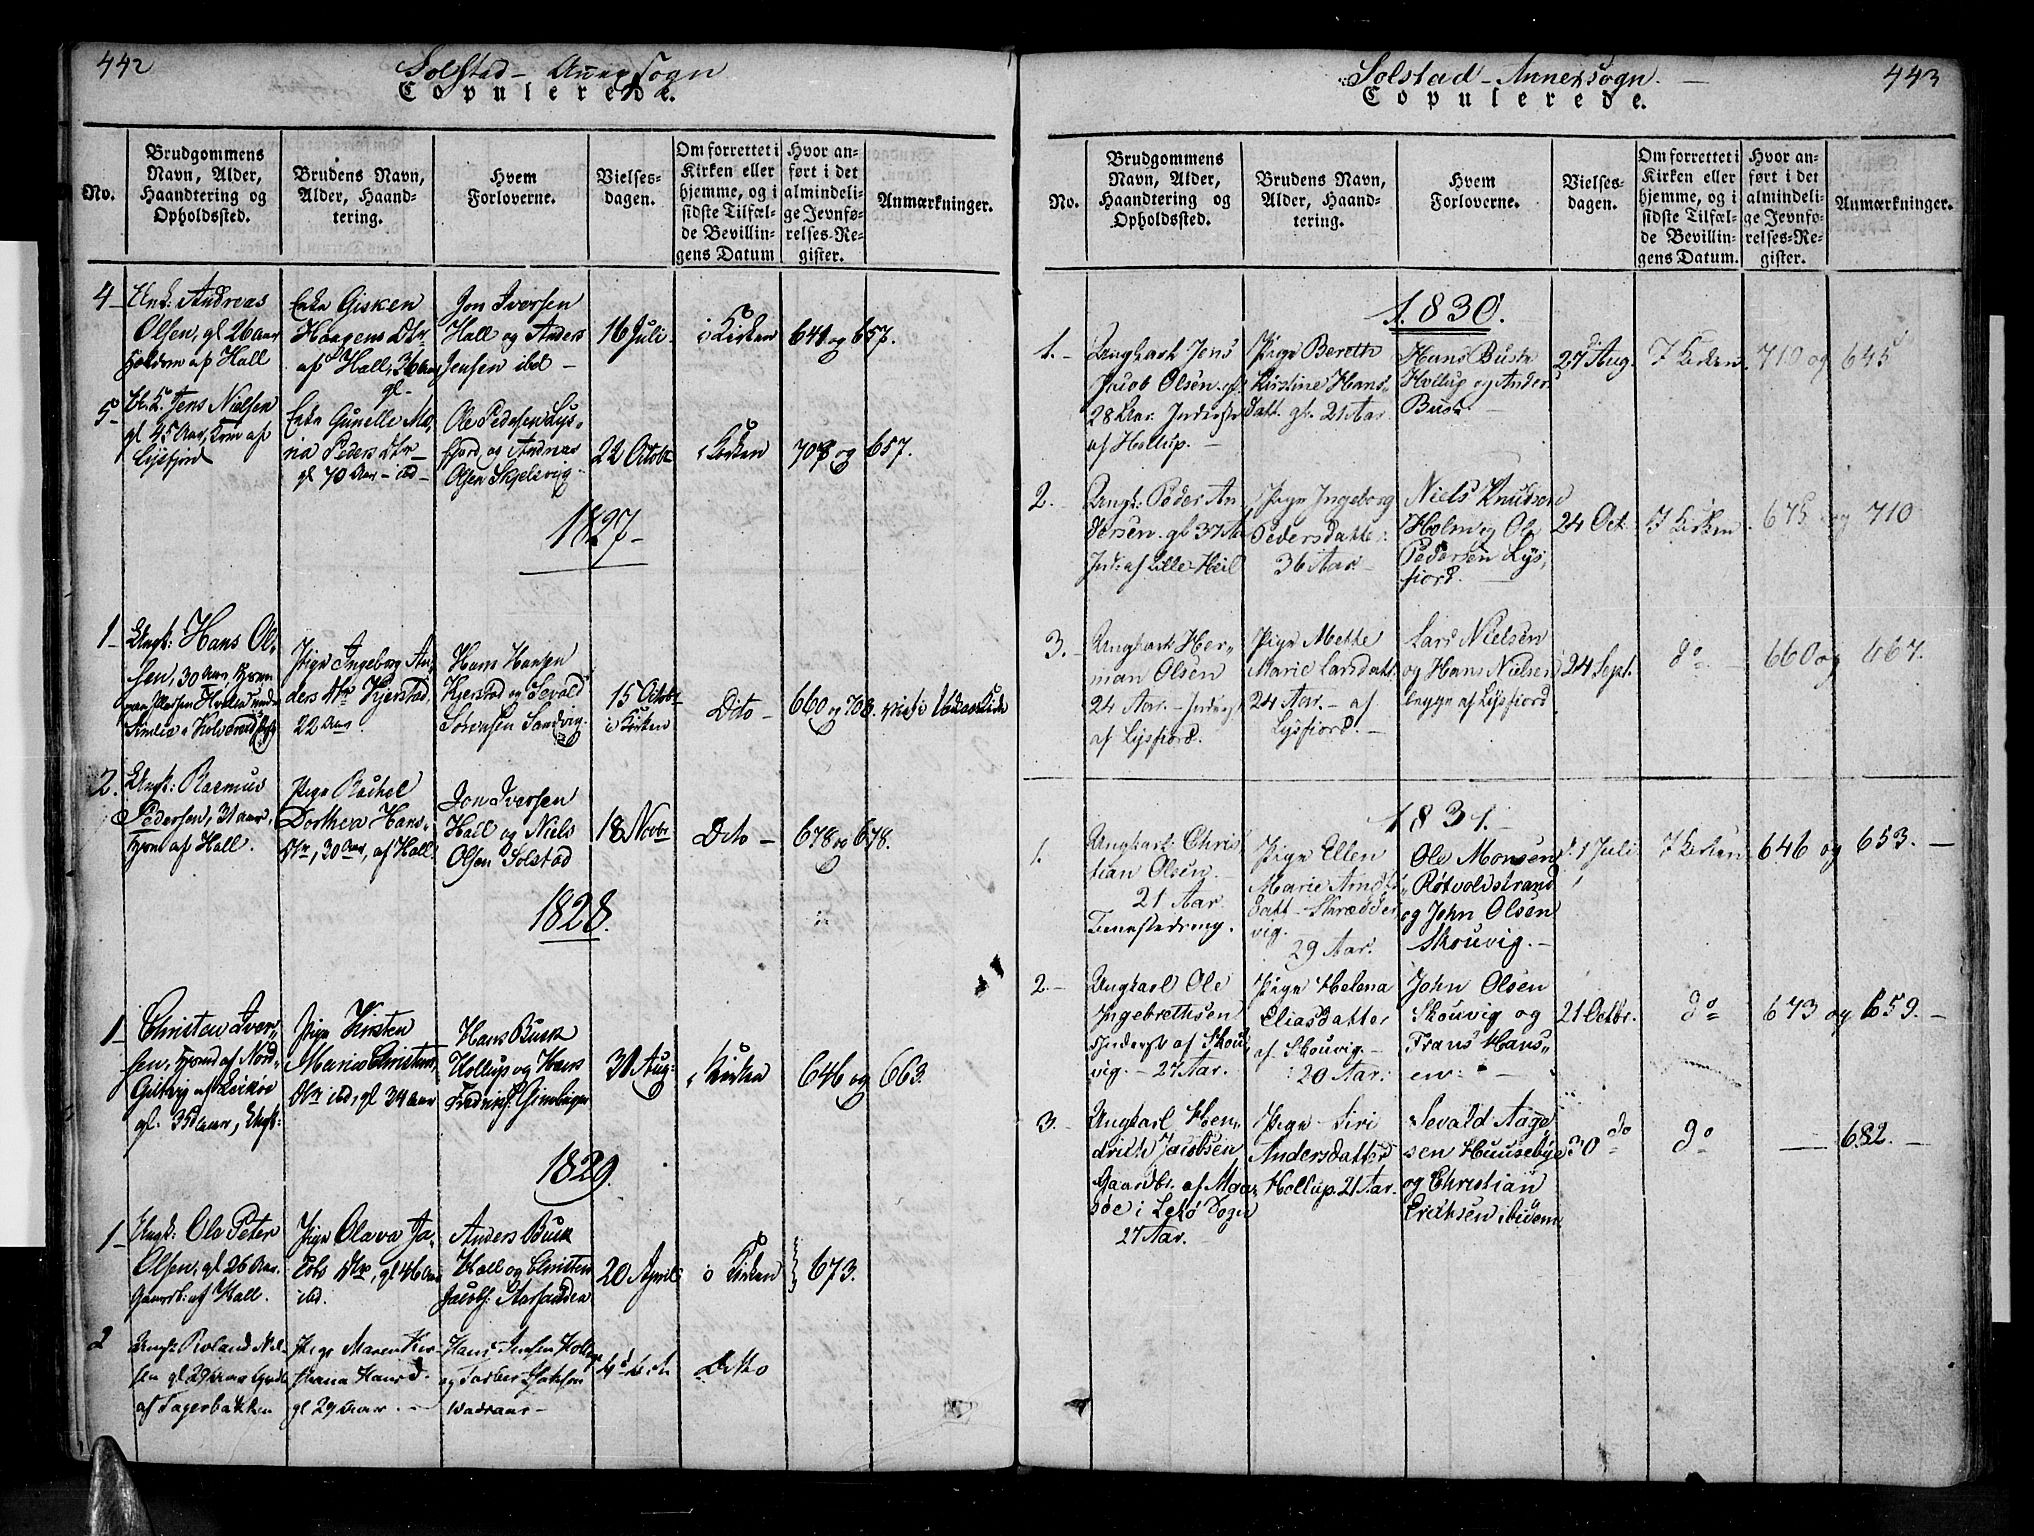 442
Solstad – Annexsogn
Copulerede.
No.
Brudgommens
Navn, Alder,
Haandtering og
Opholdssted.
Brudens Navn,
Alder, Haand-
tering.
Hvem
Forloverne.
Vielses-
dagen.
Om forrettet i
Kirken eller
hjemme, og i
sidste Tilfæl-
de Bevillin-
gens Datum
Hvor an-
ført i det
almindeli-
ge Jevnfø-
relses-Re-
gister.
Anmærkninger.
4 –
Unk: Andreas
Olsen, gl 26 aar
af Hall
Enke Gisken
Haagens Dtr
af Hall, 36 aar
gl.
Jon Iversen
Hall og Anders
Jensen ibd –
16 Juli
i Kirken
641 og 657.
5 –
Jens Nielsen
gl 45 Aar, af
Lysfjord
Enke Gunelle Ma-
ria Peders Dtr
gl 70 Aar – ibd –
Ole Pedersen Lys-
fjord og Andreas
Olsen Skjelsvig
22 Octobr
i Kirken
708 og 657.
1827 –
1 –
Ungk: Hans Ol-
sen, 30 Aar
Pige Ingeborg An-
ders Dtr Kjerstad,
22 Aar.
Hans Hansen
Kjerstad og Sevald
Sørensen Sandvig.
15 Octobr
i Kirken
Dito –
660 og 708.
2.
Ungk: Rasmus
Pedersen, 31 aar,
af Hall.
Pige Rachel
Dorthea Hans-
Dtr, 30 Aar, af Hall
Jon Iversen
Hall og Niels
Olsen Solstad
18 Novbr
Dito –
678 og 678.
1828.
1
Christen Iver-
sen, af Nord-
af Lekøe
gl. 35 aar, Ungk:
Pige Kirsten
Maria Christens
Dtr ibd, gl 34 aar
Hans Busk
Hollup og Hans
31 Aug:
i Kirken
646 og 663.
1829.
1 –
Ungk: Ole Peter
Olsen, gl 26 Aar.
af Hall.
Pige Olava Ja-
cobs Dtr, gl 46 aar
ibd.
Anders Busk
Hall og Christen
Jacobs: Aarsanden
20 April
i Kirken
673.
2
Ungk: Roland Niel-
sen gl 29 Aar
af Fagerbakken
Pige Maren Kir-
stiana Hansd.
gl 29 Aar. –
Hans Jensen Hollup
og
Ditto
443
Solstad – Annexsogn. –
Copulerede.
No.
Brudgommens
Navn, Alder,
Haandtering og
Opholdssted.
Brudens Navn,
Alder, Haand-
tering.
Hvem
Forloverne.
Vielses-
dagen.
Om forrettet i
Kirken eller
hjemme, og i
sidste Tilfæl-
de Bevillin-
gens Datum.
Hvor an-
ført i det
almindeli-
ge Jevnfø-
relses-Re-
gister.
Anmærkninger.
1830.
1. –
Ungkarl Jens
Jacob Olsen gl
28 Aar. Inderst
af Hollup. –
Pige Bereth
Kirstine Hans-
datt. gl. 21 Aar.
Hans Busk
Hollup og Anders
Busk. –
27 Aug.
I Kirken
710 og 645
2. –
Ungk: Peder An-
dersen. gl 37 Aar
Ind: af Lille-Heil
Pige Ingeborg
Pedersdatter.
36 Aar. –
Niels Knudsen
Holm og Ole
Pedersen Lys-
fiord. –
24 Oct.
I Kirken
675 og 710
3. –
Ungkarl Her-
man Olsen
24 Aar. – Inderst
af Lysfiord.
Pige Mette
Marie Larsdatt.
24 Aar. – af
Lysfiord. –
Lars Nielsen
og Hans Nielsen
begge af Lysfiord
24 Sept.
do –
660 og 667.
1831. –
1.
Ungkarl Chris-
tian Olsen.
21 Aar.
Pige Ellen
Marie Arnds-
datt – Skrædder-
vig.
29 Aar.
Ole Monsen
Røtvoldstrand
og John Olsen
Skouvig. –
d. 1 Juli
I Kirken
646 og 653. –
2. –
Ungkarl Ole
Ingebrethsen
Inderst af Skou-
vig. – 27 Aar.
Pige Helena
Eliasdatter
af Skouvig. –
20 Aar.
John Olsen
Skouvig og
Frans Hans-
en. –
21 Octbr.
do –
673 og 659. –
3. –
Ungkarl Hen-
drich Jacobsen
Gaardbr. af Maa-
søe i Lekø Sogn
27 Aar. –
Pige Siri
Andersdatter
Hollup. 21 Aar.
Sevald Aage-
sen Huusebye
og Christian
Erichsen ibidem
30 do
do
— 682. –